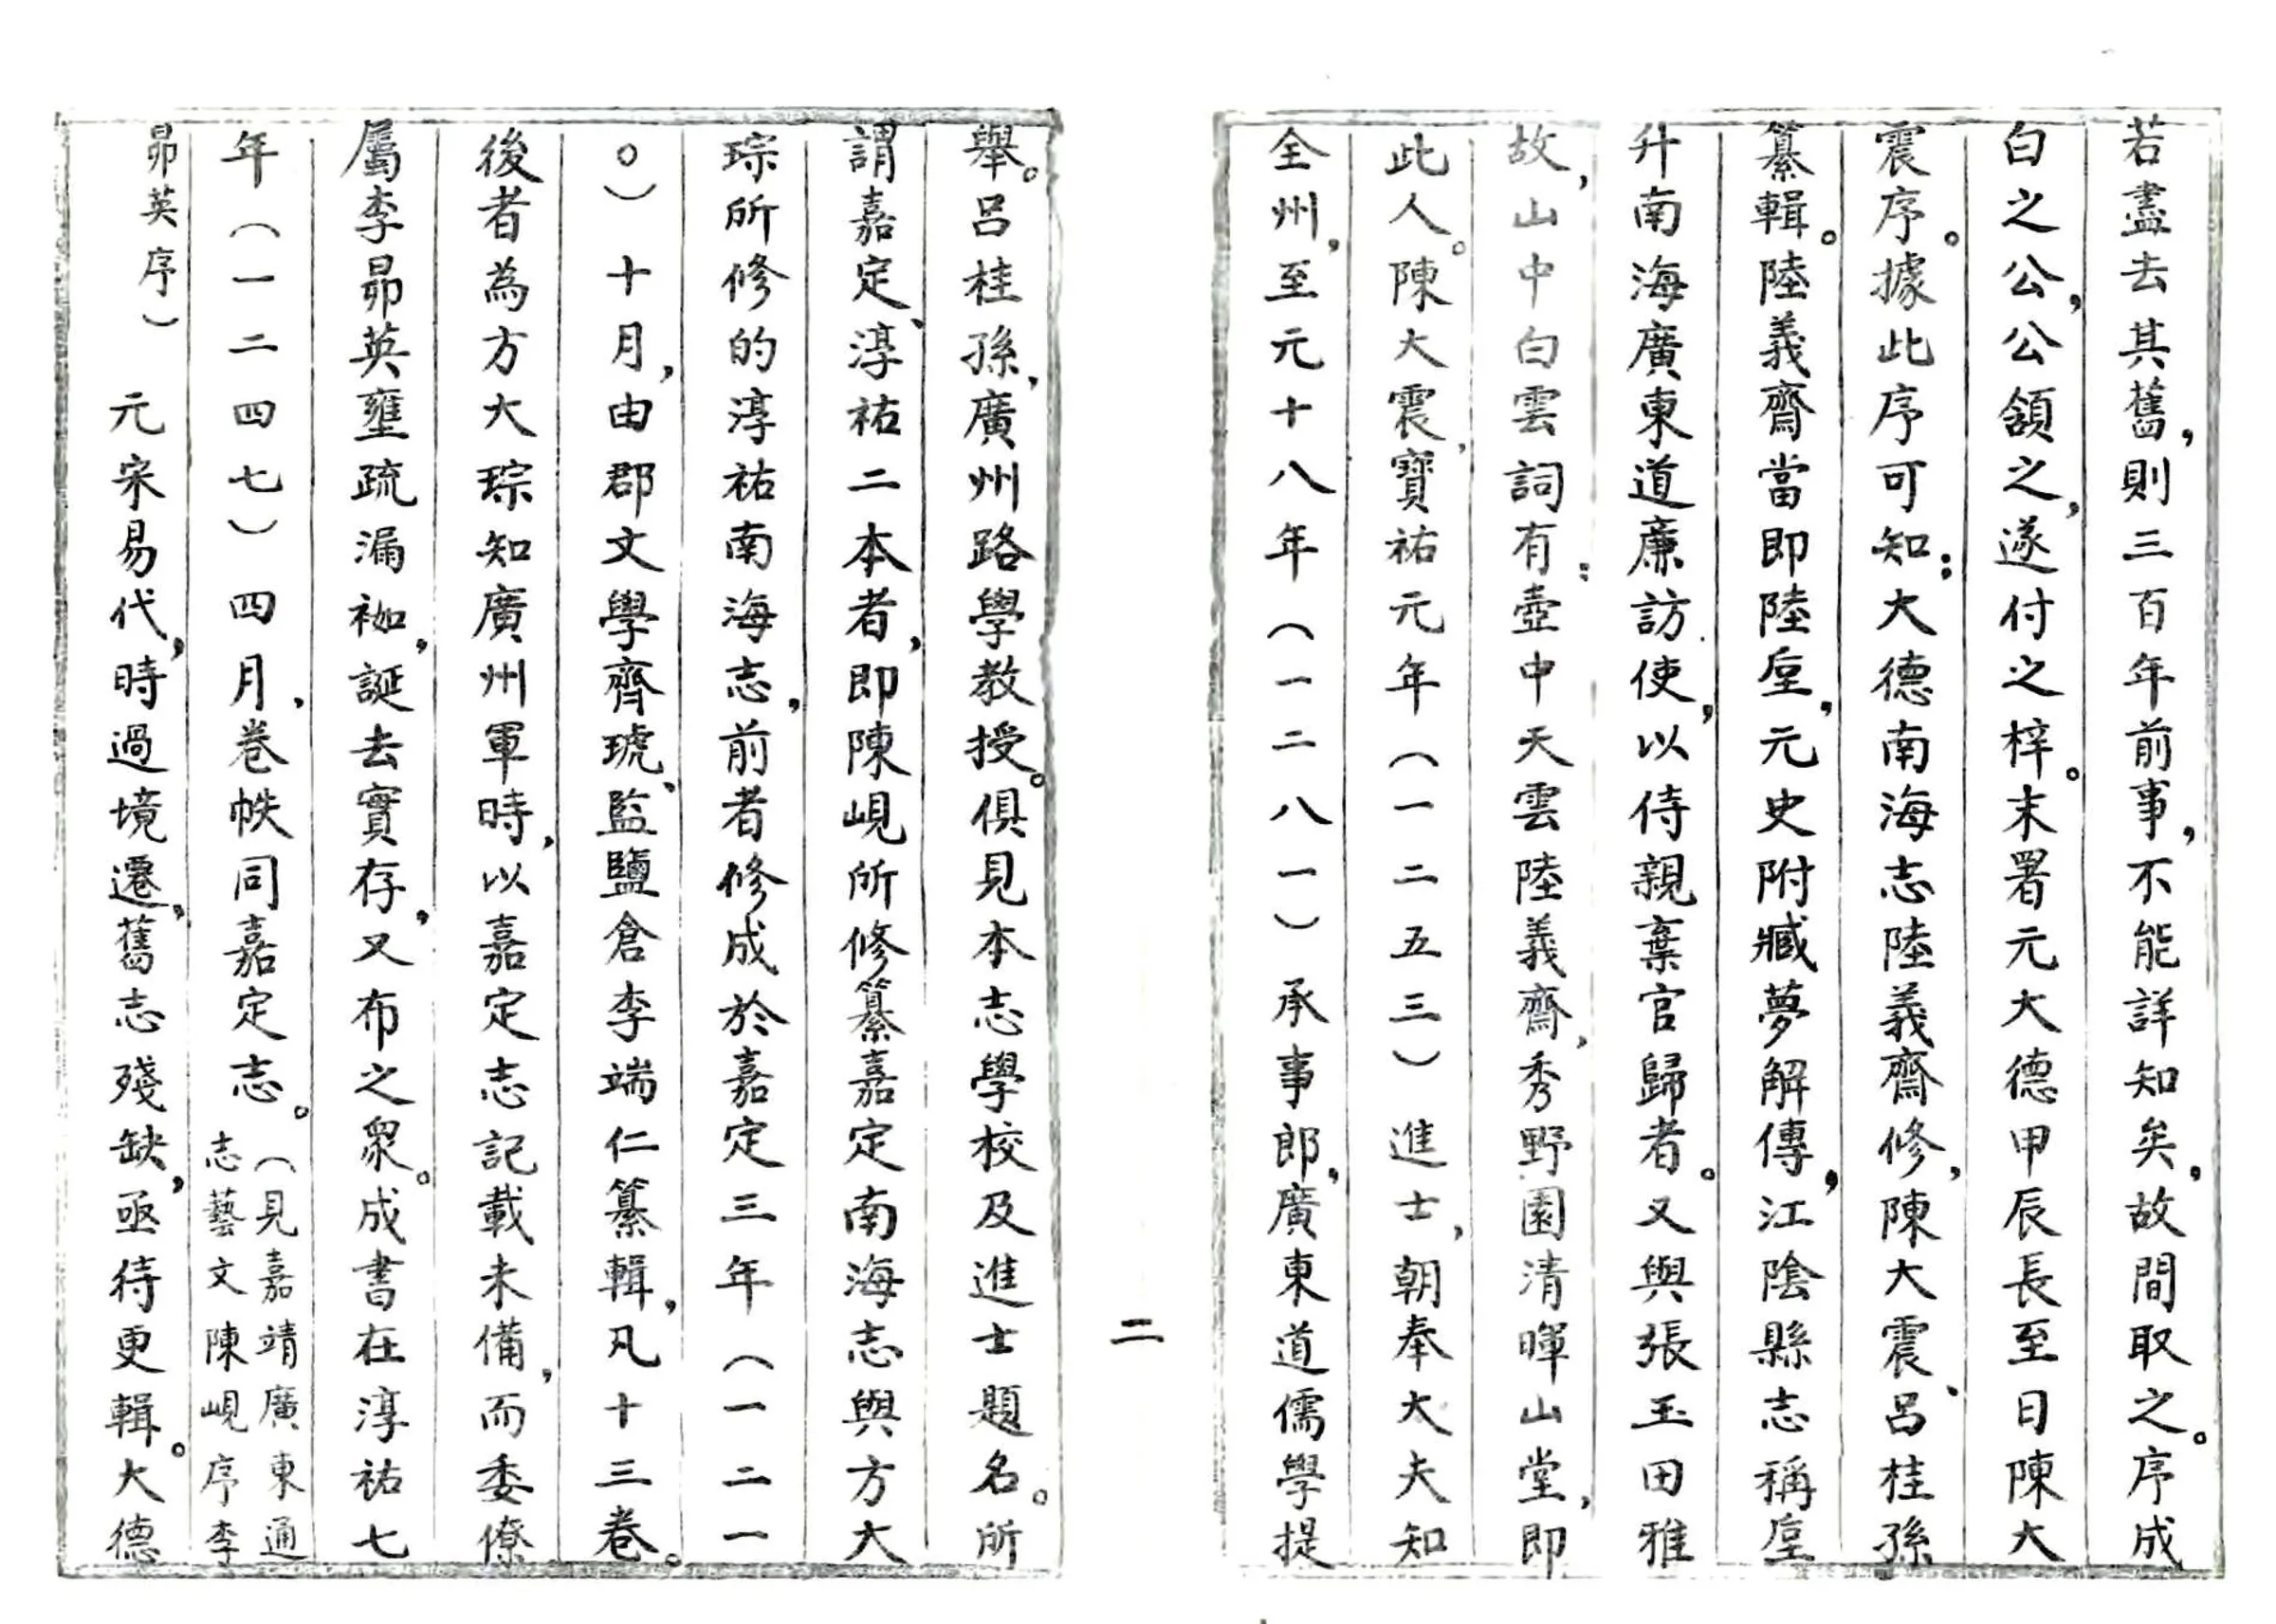 若盡去其舊，則三百年前事，不能詳知矣，故間取之。序成
白之公，公頷之，遂付之梓。末署元大德甲辰長至日陳大
震序。據此序可知：大德南海志陸義齋修，陳大震、呂桂孫
纂輯。陸義齋當即陸垕，元史附臧夢解傳，江陰縣志稱垕
升南海廣東道廉訪使，以侍親棄官歸者。又與張玉田雅
故，山中白雲詞有：壺中天雲陸義齋，秀野園清暉山堂，即
此人。陳大震，寶祐元年（一二五三）進士，朝奉大夫知
全州，至元十八年（一二八一）承事郎，廣東道儒學提
二
舉。呂桂孫，廣州路學教授。俱見本志學校及進士題名。所
謂嘉定、淳祐二本者，即陳峴所修纂嘉定南海志與方大
琮所修的淳祐南海志，前者修成於嘉定三年（一二一
〇）十月，由郡文學齊琥、監鹽倉李端仁纂輯，凡十三卷。
後者為方大琮知廣州軍時，以嘉定志記載未備，而委僚
屬李昴英壅疏漏袽，誕去實存，又布之眾。成書在淳祐七
年（一二四七）四月，卷帙同嘉定志。（見嘉靖廣東通
志藝文陳峴序李
昴英序）元宋易代，時過境遷，舊志殘缺，亟待更輯。大德